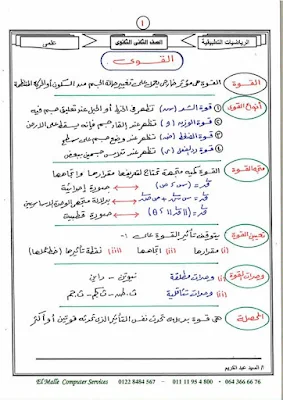 ١
الرياضيات التطبيقية
الصف الثانى الثانوى
علمى
القوى
القوة
القوة هى مؤثر خارجى يعمل على تغيير حالة الجسم من السكون أو الحركة المنتظمة
أنواع القوى
١ قوة الشد (ش) تظهر فى الخيط أو الحبل عند تعليق جسم فيه
٢ قوة الوزن (و) تظهر عند إلقاء جسم فإنه يسقط على الأرض
٣ قوة الضغط (ض) تظهر عند وضع جسم على سطح
٤ قوة رد الفعل (ر) تظهر عند تلامس جسمين ببعض
متجه القوة
القوة كمية متجهة تحتاج لتعريفها مقدارها واتجاهها
صورة إحداثية
بدلالة متجهى الوحدة الأساسيين
صورة قطبية
تعيين القوة
يتوقف تأثير القوة على :-
(i) مقدارها (ii) اتجاهها (iii) نقطة تأثيرها (خط عملها)
وحدات القوة
(i) وحدات مطلقة نيوتن - داين
(ii) وحدات تثاقلية ث.طن - ث.كجم - ث.جم
المحصلة
هى قوة بديلة تحدث نفس التأثير الذى تحدثه قوتين أو أكثر
أ/ السيد عبد الكريم
El Malle Computer Services 0122 8464 567 - 011 11 95 4 800 - 064 366 66 76